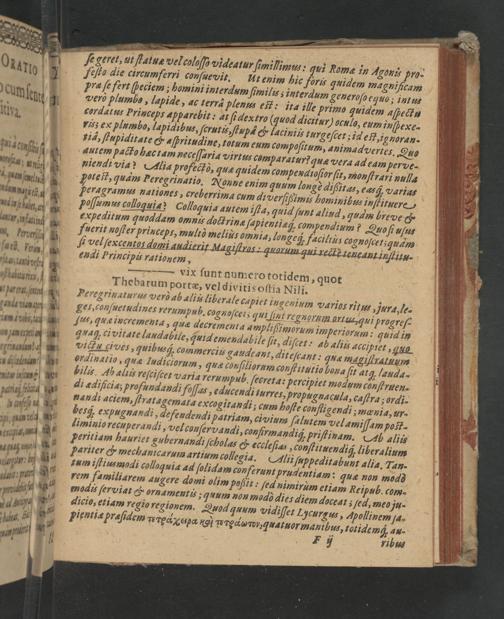 ORATIO
o cum sente
itiva.
se geret, ut statuæ vel colosso videatur simillimus: qui Romæ in Agonis pro-
festo die circumferri consuevit. Ut enim hic foris quidem magnificam
præ se fert speciem; homini interdum similis; interdum generoso equo; intus
verò plumbo, lapide, ac terrâ plenus est: ita ille primo quidem aspectu
cordatus Princeps apparebit: at si dextro (quod dicitur) oculo, eum inspexe-
ris ex plumbo, lapidibus, scrutis, stupâ & laciniis turgescet: id est, ignoran-
tiâ, stupiditate & aspritudine, totum eum compositum, animadvertes. Quo
autem pacto hæc tam necessaria virtus comparatur? quæ vera ad eam perve-
niendi via? Alia profectò, quæ quidem compendiosior sit, monstrari nulla
potest, quàm Peregrinatio. Nonne enim quum longè dissitas, easq́; varias
peragramus nationes, creberrima cum diversissimis hominibus instituere
possumus colloquia? Colloquia autem ista, quid sunt aliud, quàm breve &
expeditum quoddam omnis doctrinæ sapientiæq́; compendium? Quo si usus
fuerit noster princeps, multò meliùs omnia, longeq́; faciliùs cognoscet; quàm
si vel sexcentos domi audierit Magistros: quorum qui rectè teneant institu-
endi Principis rationem,
vix sunt numero totidem, quot
Thebarum portæ, vel divitis ostia Nili.
Peregrinaturus verò ab aliis liberale capiet ingenium varios ritus, jura, le-
ges, consuetudines rerumpub. cognoscet; qui sint regnorum ortus, qui progres-
sus, quæ incrementa, quæ decrementa amplissimorum imperiorum: quid in
quaq́; civitate laudabile, quid emendabile sit, discet: ab aliis accipiet, quo
victu cives, quibusq́; commerciis gaudeant, ditescant: quæ magistratuum
ordinatio, quæ Iudiciorum, quæ consiliorum constitutio bona sit atq́; lauda-
bilis. Ab aliis resciscet varia rerumpub. secreta: percipiet modum construen-
di ædificia; profundandi fossas, educendi turres, propugnacula, castra; ordi-
nandi aciem, stratagemata excogitandi; cum hoste confligendi; mœnia, ur-
besq́; expugnandi, defendendi patriam, civium salutem vel amissam post-
liminio recuperandi, vel conservandi, confirmandiq́; pristinam. Ab aliis
peritiam hauriet gubernandi scholas & ecclesias, constituendiq́; liberalium
pariter & mechanicarum artium collegia. Alii suppeditabunt alia. Tan-
tum istiusmodi colloquia ad solidam conferunt prudentiam: quæ non modò
rem familiarem augere domi olim possit: sed nimirùm etiam Reipub. com-
modis serviat & ornamentis; quum non modò dies diem doceat; sed, meo ju-
dicio, etiam regio regionem. Quod quum vidisset Lycurgus, Apollinem sa-
pientiæ præsidem τετράχειρα καὶ τετράωτον, quatuor manibus, totidemq́; au-
F ij ribus